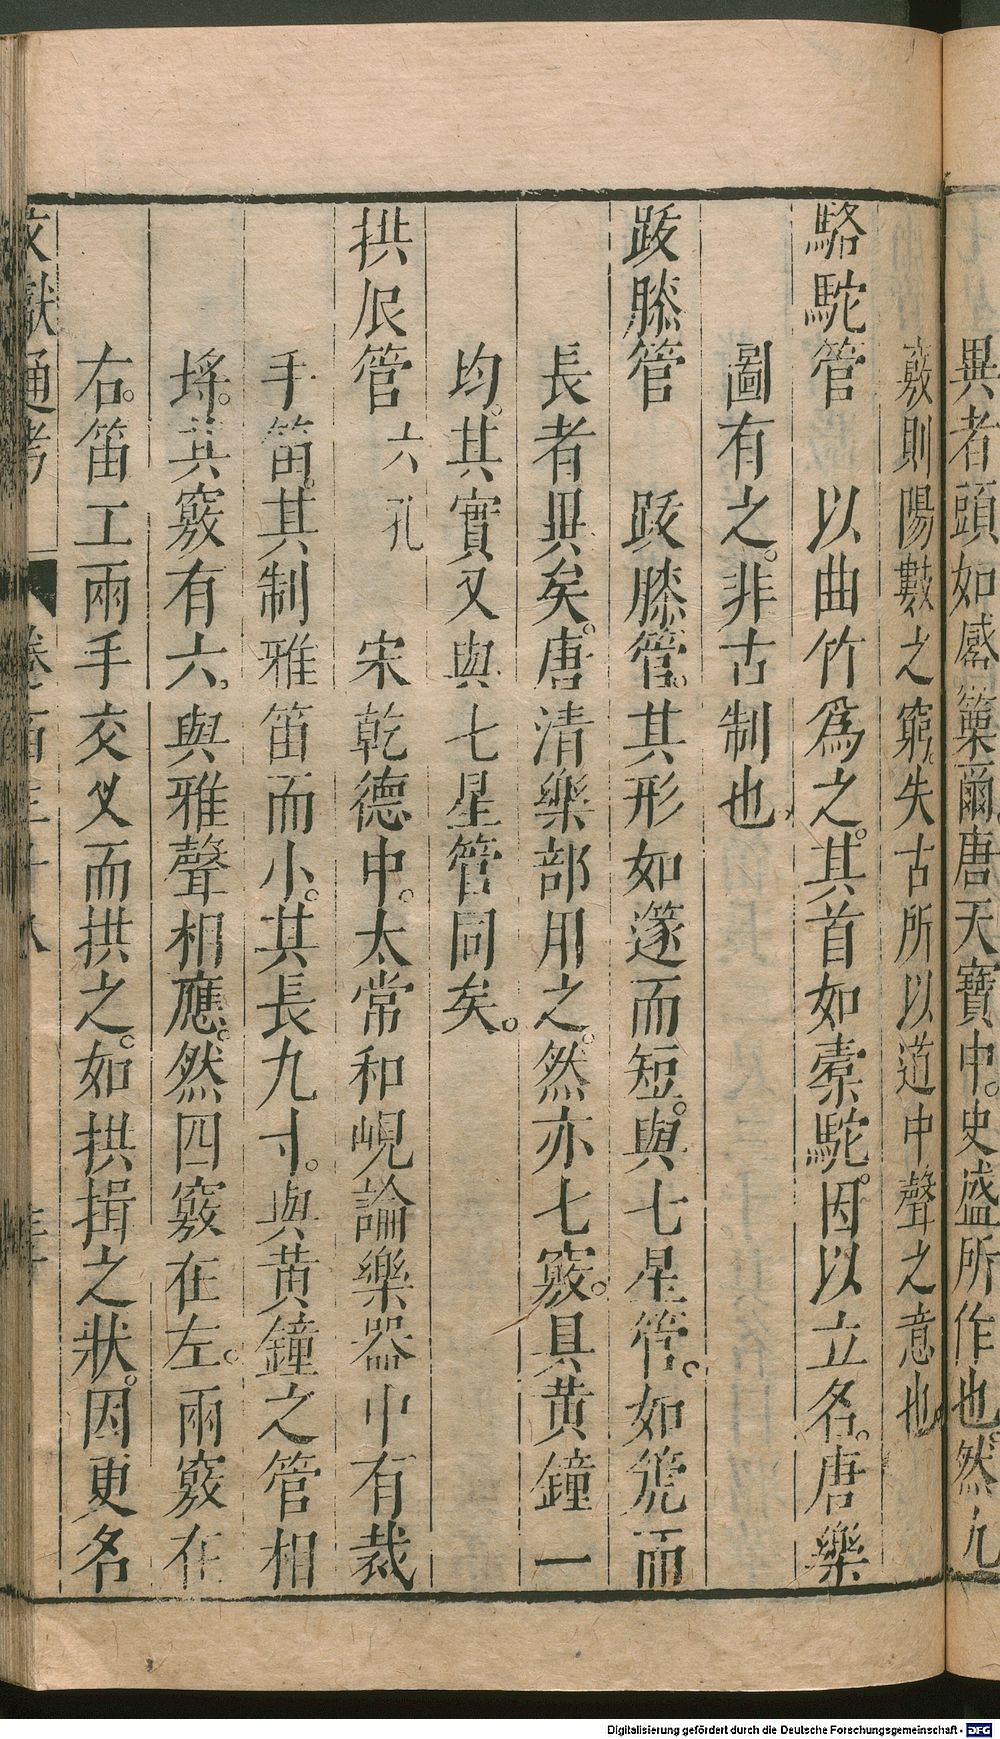 異者頭如觱篥爾唐天寶中史盛所作也然九
竅則陽數之窮失古所以道中聲之意也
駱駝管　以曲竹爲之其首如橐駝因以立名唐樂
圖有之非古制也
跂膝管　跂膝管其形如篴而短與七星管如箎而
長者異矣唐清樂部用之然亦七竅具黃鐘一
均其實又與七星管同矣
拱辰管 六孔　宋乾德中太常和峴論樂器中有裁
手笛其制雅笛而小其長九寸與黃鐘之管相
埓其竅有六與雅聲相應然四竅在左兩竅在
右笛工兩手交叉而拱之如拱揖之狀因更名
文獻通考
Digitalisierung gefördert durch die Deutsche Forschungsgemeinschaft - DFG